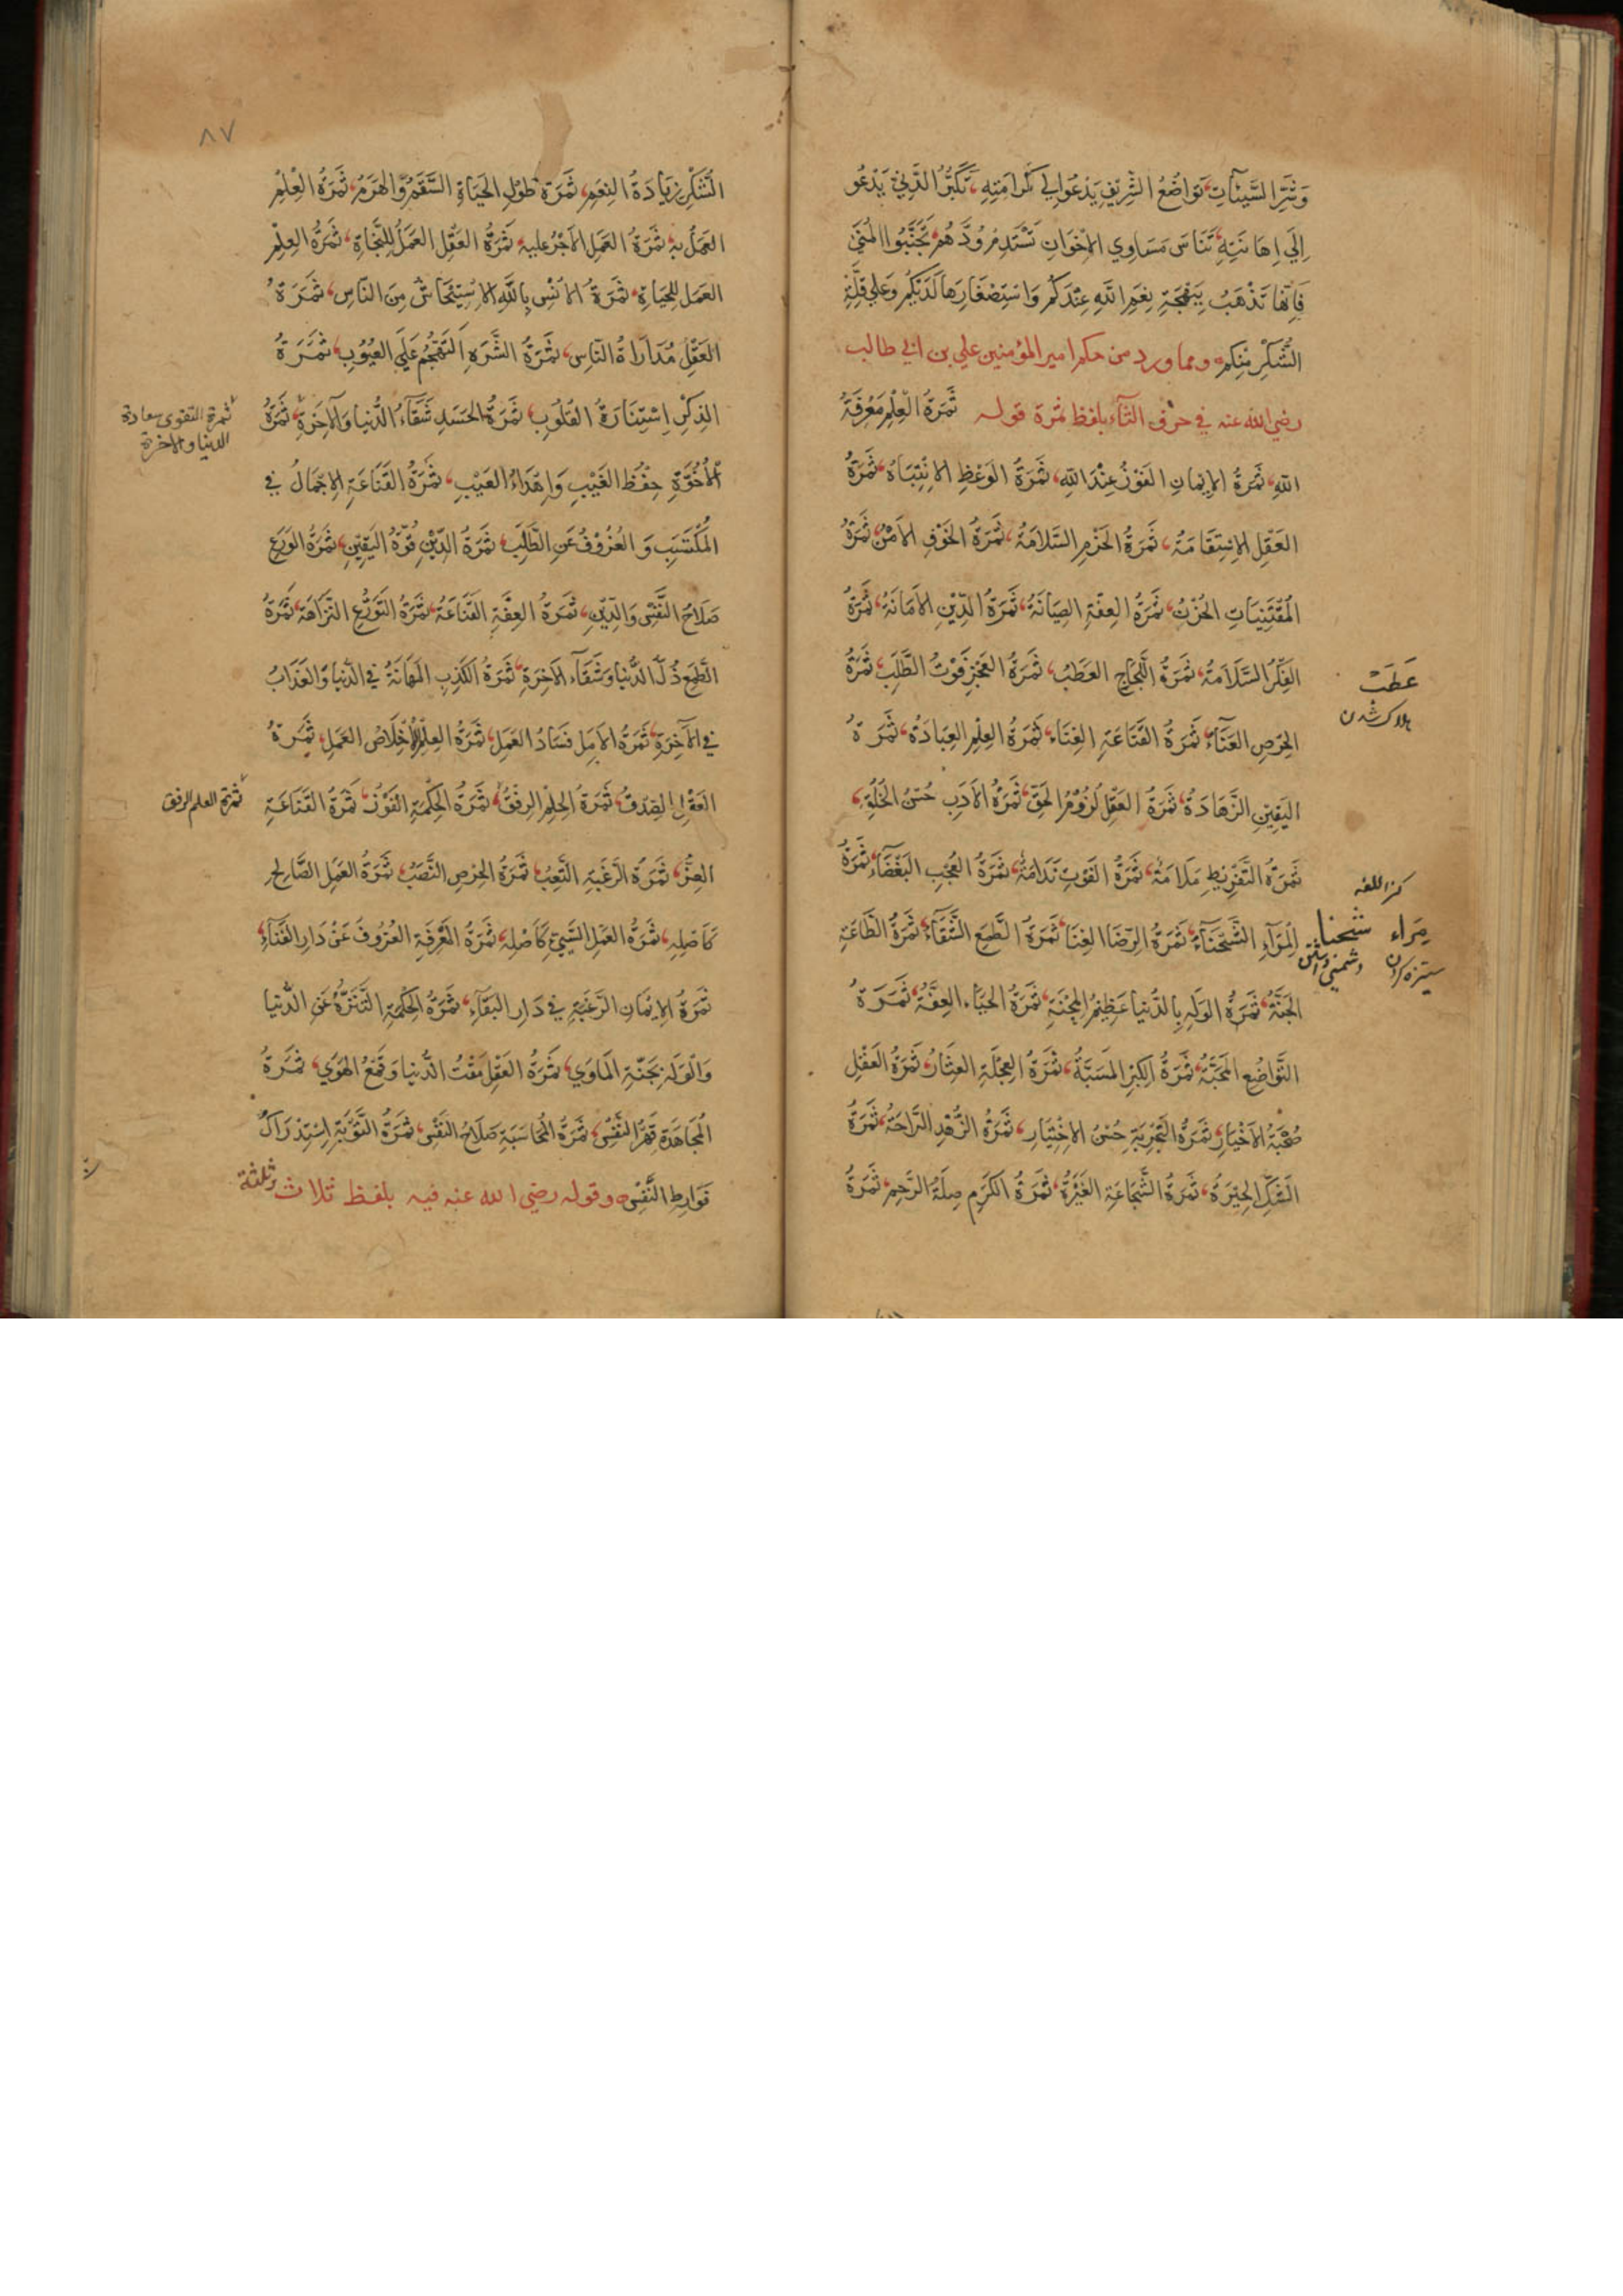 وَتَنْشُرُ السَّيِّئَاتِ، تَوَاضُعُ الشَّرِيفِ يَدْعُوا اِلَي كَرَامَتِهِ، تَكَبُّرُ الدَّنِيّ يَدْعُو
اِلَي اِهَانَتِهِ، تَنَاسَ مَسَاوِي الاِخْوَانِ تَسْتَدِمْ وُدَّهُمْ، تَجَنَّبُوا المُنَيَ
فَاِنَّهَا تَذْهَبُ بِبَهْجَةِ نِعَمِ اللّهِ عِنْدَكُمْ وَاسْتِصْغَارِهَا لَدَيْكُمْ وَعَلَي قِلَّةِ
الشُّكْرِ مِنْكُمْ ومما ورد من حكم امير المؤمنين علي بن ابي طالب
رضي الله عنه في حرف الثآء بلفظ ثمرة قوله ثَمَرَةُ الْعِلْمِ مَعْرِفَةُ
اللهِ، ثَمَرَةُ الاِيْمَانِ الفَوْزُ عِنْدَ اللهِ، ثَمَرَةُ الوَعْظِ الاِنْتِبَاهُ، ثَمَرَةُ
العَقْلِ الاِسْتِقَامَةُ، ثَمَرَةُ الحَزْمِ السَّلَامَةُ، ثَمَرَةُ الخَوْفِ الاَمْنُ، ثَمَرَةُ
المُقْتَنِيَاتِ الحُزْنُ، ثَمَرَةُ العِفَّةِ الصِيَانَةُ، ثَمَرَةُ الدِّيْنِ الاَمَانَةُ، ثَمَرَةُ
الفِكْرِ السَّلَامَةُ، ثَمَرَةُ اللَّجَاجِ العَطَبُ، ثَمَرَةُ العَجْزِ فَوْتُ الطَّلَبِ، ثَمَرَةُ
عَطَبْ
هلاك شدن
الحِرْصِ العَنَآءُ، ثَمَرَةُ القَنَاعَةِ الغِنَاء، ثَمَرَةُ العِلْمِ العِبَادَةُ، ثَمَرَةُ
اليَقِيْنِ الزَّهَادَةُ، ثَمَرَةُ العَقْلِ لُزُوْمُ الحَقِّ، ثَمَرَةُ الاَدَبِ حُسْنُ الخُلُقِ،
ثَمَرَةُ التَّفْرِيْطِ مَلَامَةٌ، ثَمَرَةُ الفَوْتِ نَدَامَةٌ، ثَمَرَةُ العُجْبِ البَغْضَآءُ، ثَمَرَةُ
كنز اللغه
المِرَآءِ الشَّحْنَآءُ، ثَمَرَةُ الرِّضَا الغِنَا، ثَمَرَةُ الطَّمَعِ الشَّقَآءُ، ثَمَرَةُ الطَّاعَةِ
مِرَاء شَحْنا
ستيزه كردن دشمني داشتن
الجَنَّةُ، ثَمَرَةُ الوَلَهِ بِالدُّنْيَا عَظِيْمُ المِحْنَةِ، ثَمَرَةُ الحَيَاءِ العِفَّةُ، ثَمَرَةُ
التَّوَاضُعِ المَحَبَّةُ، ثَمَرَةُ الكِبْرِ المَسَبَّةُ، ثَمَرَةُ العِجْلَةِ العِثَارُ، ثَمَرَةُ العَقْلِ
صُحْبَةُ الاَخْيَارِ، ثَمَرَةُ التَّجْرِبَةِ حُسْنُ الاِخْتِيَارِ، ثَمَرَةُ الزُّهْدِ الرَّاحَةُ، ثَمَرَةُ
الحِيْرَةُ، ثَمَرَةُ الشَّجَاعَةِ الغَيْرَةُ، ثَمَرَةُ الكَرَمِ صِلَةُ الرَّحِمِ، ثَمَرَةُ
٨٧
الشُّكْرِ زِيَادَةُ النِعَمِ، ثَمَرَةُ طُوْلِ الحَيَاةِ السَّقَمُ وَالهَرَمُ، ثَمَرَةُ العِلْمِ
العَمَلُ بِهِ، ثَمَرَةُ العَمَلِ الاَجْرُ عَلَيهِ، ثَمَرَةُ العَقْلِ العَمَلُ لِلنَّجَاةِ، ثَمَرَةُ العِلْمِ
العَمَل لِلحَيَاةِ، ثَمَرَةُ الاُنْسِ بِاللهِ الاِسْتِيْحَاشُ مِنَ النَّاسِ، ثَمَرَةُ
العَقْلِ مُدَارَاةُ النَّاسِ، ثَمَرَةُ الشَّرَهِ التَّهَجُّمُ عَلَي العُيُوْبِ، ثَمَرَةُ
الذِكْرِ اِسْتِنَارَةُ القُلُوْبِ، ثَمَرَةُ الحَسَدِ شَقَآءُ الدُّنْيَا وَالآخِرَةِ، ثَمَرَةُ
ثمرة التقوى سعادة
الدنيا والاخرة
الاُخُوَّةِ حِفْظُ الغَيْبِ وَاِهْدَاءُ العَيْبِ، ثَمَرَةُ القَنَاعَةِ الاِجْمَالُ فِي
المُكْتَسَبِ وَالعُزُوْفُ عَنِ الطَّلَبِ، ثَمَرَةُ الدِّيْنِ قُوَّةُ اليَقِيْنِ، ثَمَرَةُ الوَرَعِ
صَلَاحُ النَّفْسِ وَالدِّيْنِ، ثَمَرَةُ العِفَّةِ القَنَاعَةُ، ثَمَرَةُ التَوَرُّعِ النَّزَاهَةُ، ثَمَرَةُ
الطَّمَعِ ذُلُّ الدُّنْيَا وَشَقَآءُ الآخِرَةِ، ثَمَرَةُ الكَذِبِ المَهَانَةُ فِي الدُّنْيَا وَالعَذَابُ
فِي الآخِرَةِ، ثَمَرَةُ الاَمَلِ فَسَادُ العَمَلِ، ثَمَرَةُ العِلْمِ اِخْلَاصُ العَمَلِ، ثَمَرَةُ
العَقْلِ الصِدْقُ، ثَمَرَةُ الحِلْمِ الرِفْقُ، ثَمَرَةُ الحِكْمَةِ الفَوْزُ، ثَمَرَةُ القَنَاعَةِ
ثمرة العلم الرفق
العِزُّ، ثَمَرَةُ الرَّغْبَةِ التَّعَبُ، ثَمَرَةُ الحِرْصِ النَّصَبُ، ثَمَرَةُ العَمَلِ الصَّالِحِ
كَاَصْلِهِ، ثَمَرَةُ العَمَلِ السَّيِّيءِ كَاَصْلِهِ، ثَمَرَةُ المَعْرِفَةِ العُزُوْفُ عَنْ دَارِ الفَنَآءِ،
ثَمَرَةُ الاِيْمَانِ الرَّغْبَةِ فِي دَارِ البَقَآءِ، ثَمَرَةُ الحِكْمَةِ التَّنَزُّهُ عَنِ الدُّنْيَا
وَالْوَلَهُ بِجَنَّةِ المَاوَي، ثَمَرَةُ العَقْلِ مَقْتُ الدُّنْيَا وَقَمْعُ الهَوَي، ثَمَرَةُ
المُجَاهَدَةِ قَهْرُ النَّفْسِ، ثَمَرَةُ المُحَاسَبَةِ صَلَاحُ النَّفْسِ، ثَمَرَةُ التَّوْبَةِ اِسْتِدْرَاكُ
فَوَارِطِ النَّفْسِ وقوله رضي الله عنه فيه بلفظ ثلاث وثلثة